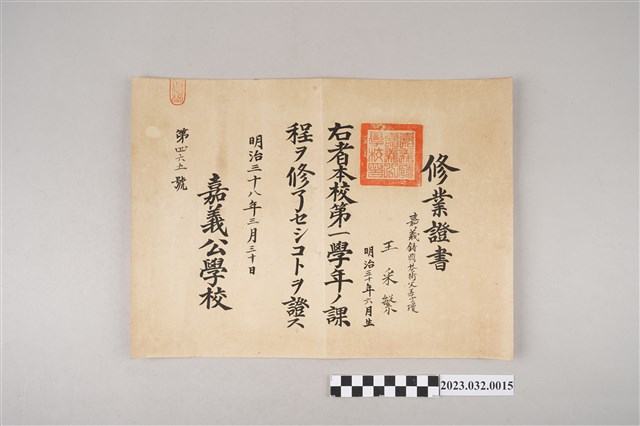 修業證書
嘉義
王采蘩
明治三十年六月生
右者本校第一學年ノ課
程ヲ修了セシコトヲ證ス
明治三十八年三月三十日
嘉義公學校
第四六五號
2023.032.0015